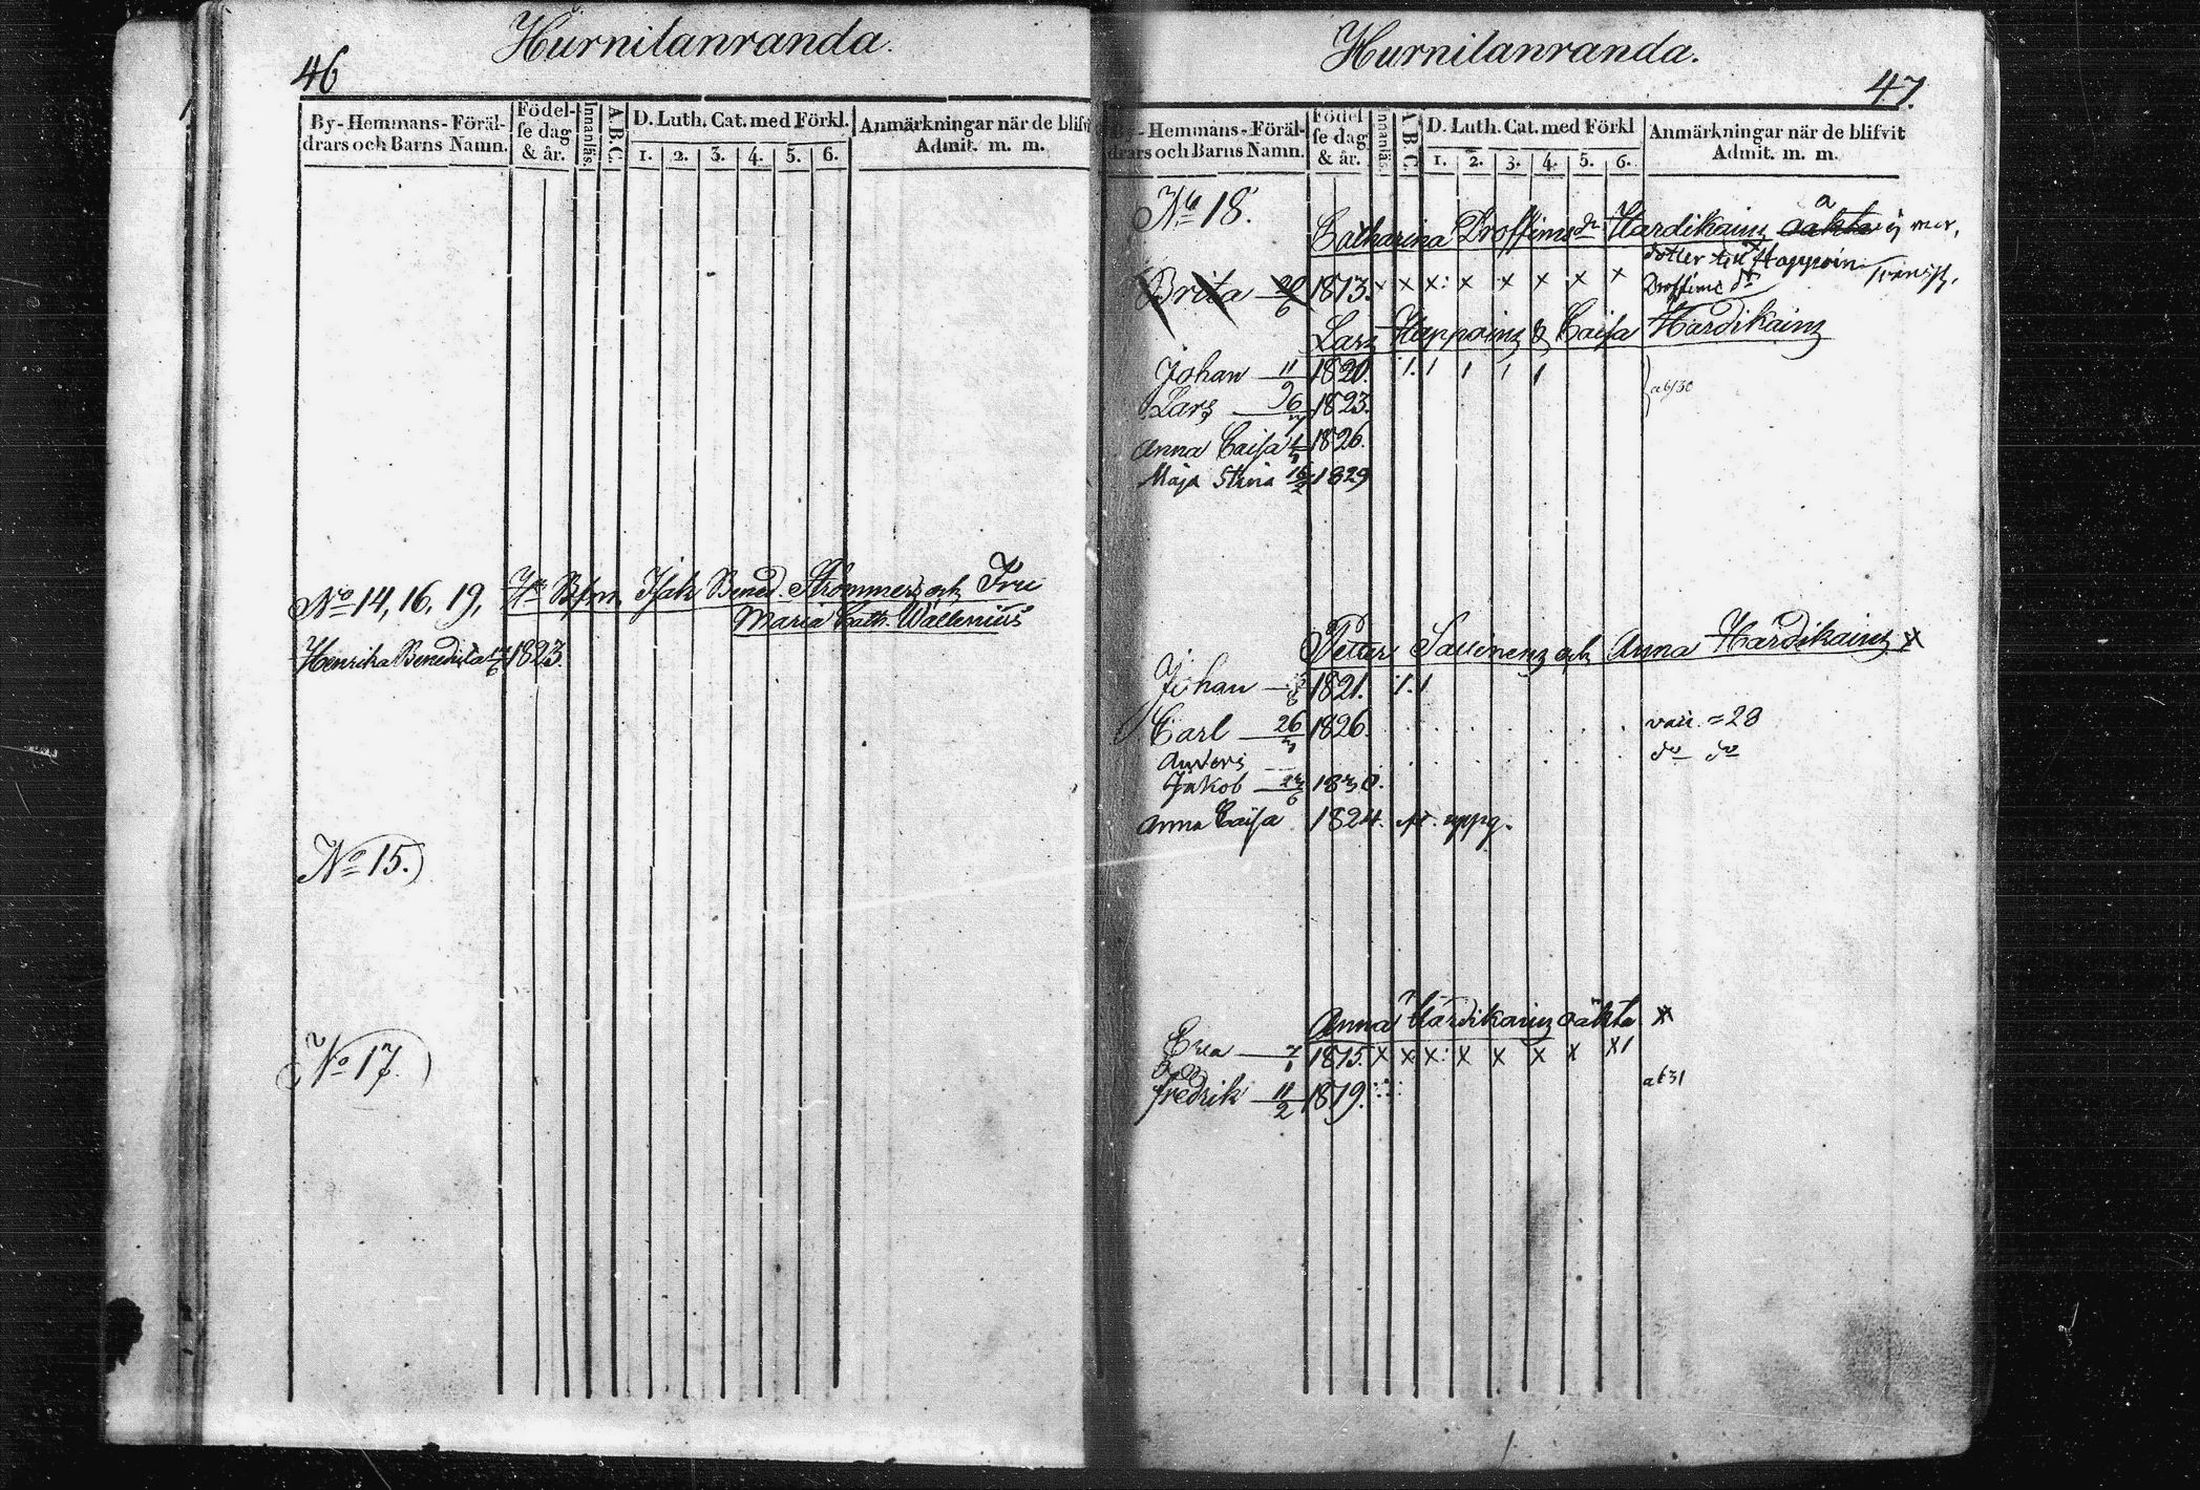 46
Hurnilanranda.
By-Hemmans-Föräl-
drars och Barns Namn.
Födel-
se dag
& år.
Innanläs.
A.B.C.
D. Luth. Cat. med Förkl.
1. 2. 3. 4. 5. 6.
Anmärkningar när de blifvit
Admit. m. m.
No 14, 16, 19,
Isak Bened. Strömmer och Fru
Maria Cath. Wallenius
Henrika Benedicta 1823.
No 15.)
(No 17.)
Hurnilanranda.
47.
By-Hemmans-Föräl-
drars och Barns Namn.
Födel-
se dag
& år.
Innanläs.
A.B.C.
D. Luth. Cat. med Förkl
1. 2. 3. 4. 5. 6.
Anmärkningar när de blifvit
Admit. m. m.
No 18.
Catharina Hardikainz
dotter till Happoin
Brita 1813. x x x: x x x x x
Lars Happoinz & Caisa Hardikainz
Johan 11 1820.
Lars 1823.
Anna Caisa 1826.
Maja Stina 16/2 1829
Petter Savinenz och Anna Hardikainz x
Johan 1821.
Carl 26 1826.
Anders do do
Jakob 1830.
Anna Caisa 1824. uppg.
Anna Hardikainz oäkta x
Eva 1815. x x x: x x x x x1
Fredrik 11/2 1819.